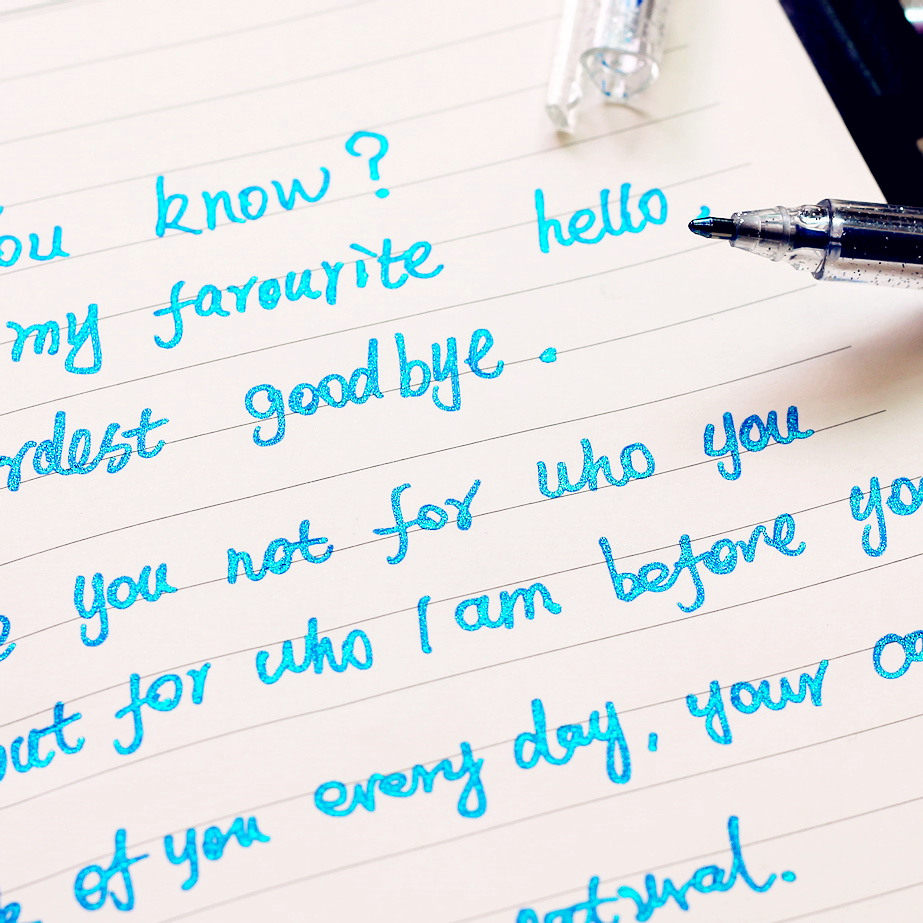 you know?
my favourite hello,
rdest goodbye.
you not for who you
out for who I am before yo
of you every day, your
natural.